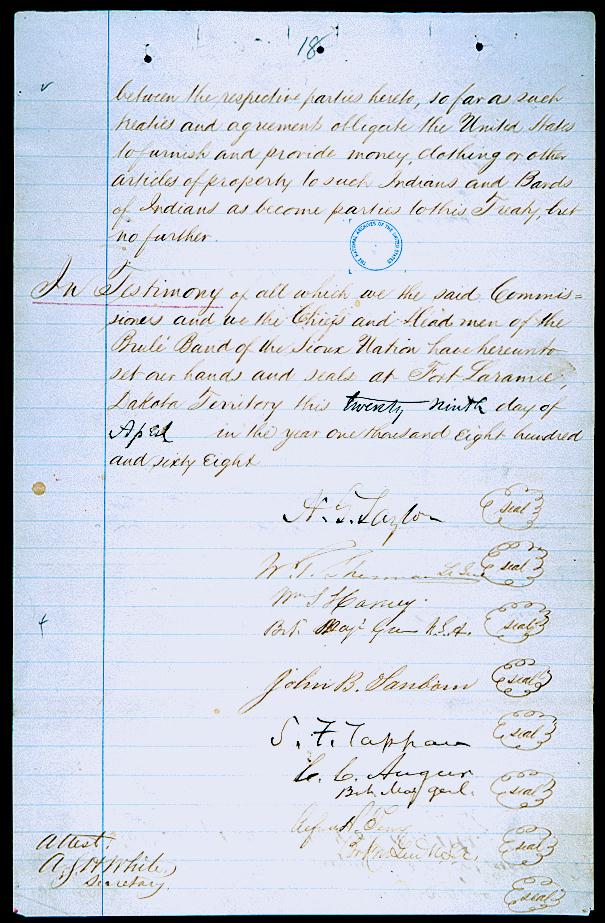 18
between the respective parties hereto, so far as such
treaties and agreements obligate the United States
to furnish and provide money, clothing or other
articles of property to such Indians and Bands
of Indians as become parties to this Treaty, but
no further.
THE NATIONAL ARCHIVES OF THE UNITED STATES
In Testimony of all which we the said Commis=
sioners and we the Chiefs and Head men of the
Brulé Band of the Sioux Nation have hereunto
set our hands and seals at Fort Laramie,
Dakota Territory this twenty ninth day of
April in the year one thousand Eight hundred
and sixty Eight
N. G. Taylor seal
W. T. Sherman Lt Genl seal
Wm S Harney.
Bvt. Maj Gen U.S.A. seal
John B. Sanborn seal
S. F. Tappan seal
C. C. Augur
Bvt. Maj genl. seal
Alfred H Terry
Bvt M Gen U.S.A. seal
Attest:
A. S. H. White,
Secretary
seal